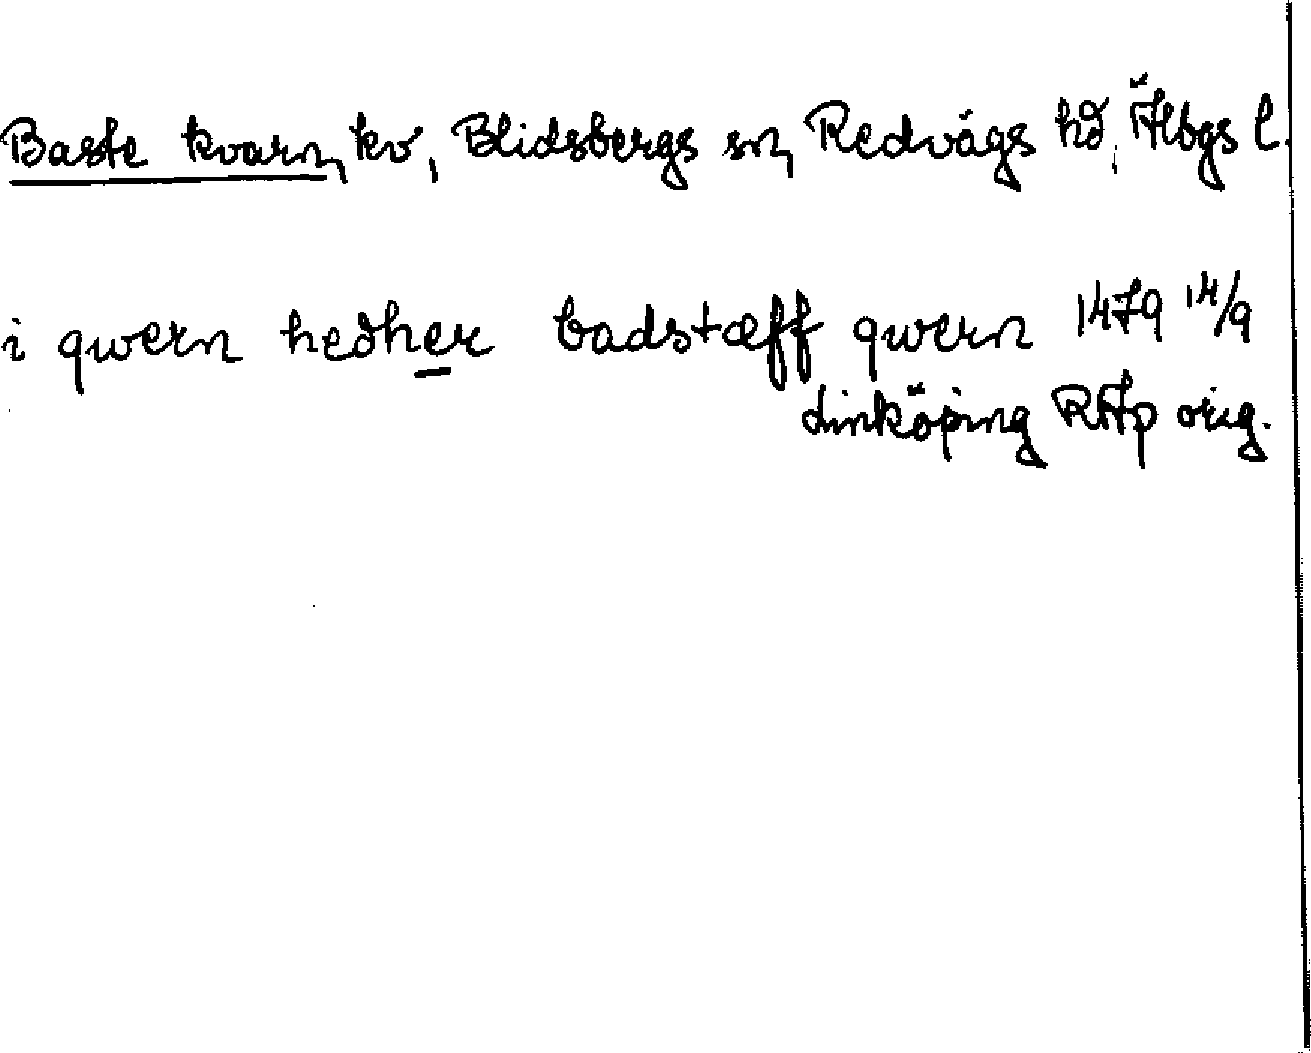 Baste kvarn, kv, Blidsbergs sn, Redvägs hd, Älbgs l.
i qwern hedher badstæff qwern 1479 14/9
Linköping RAp orig.